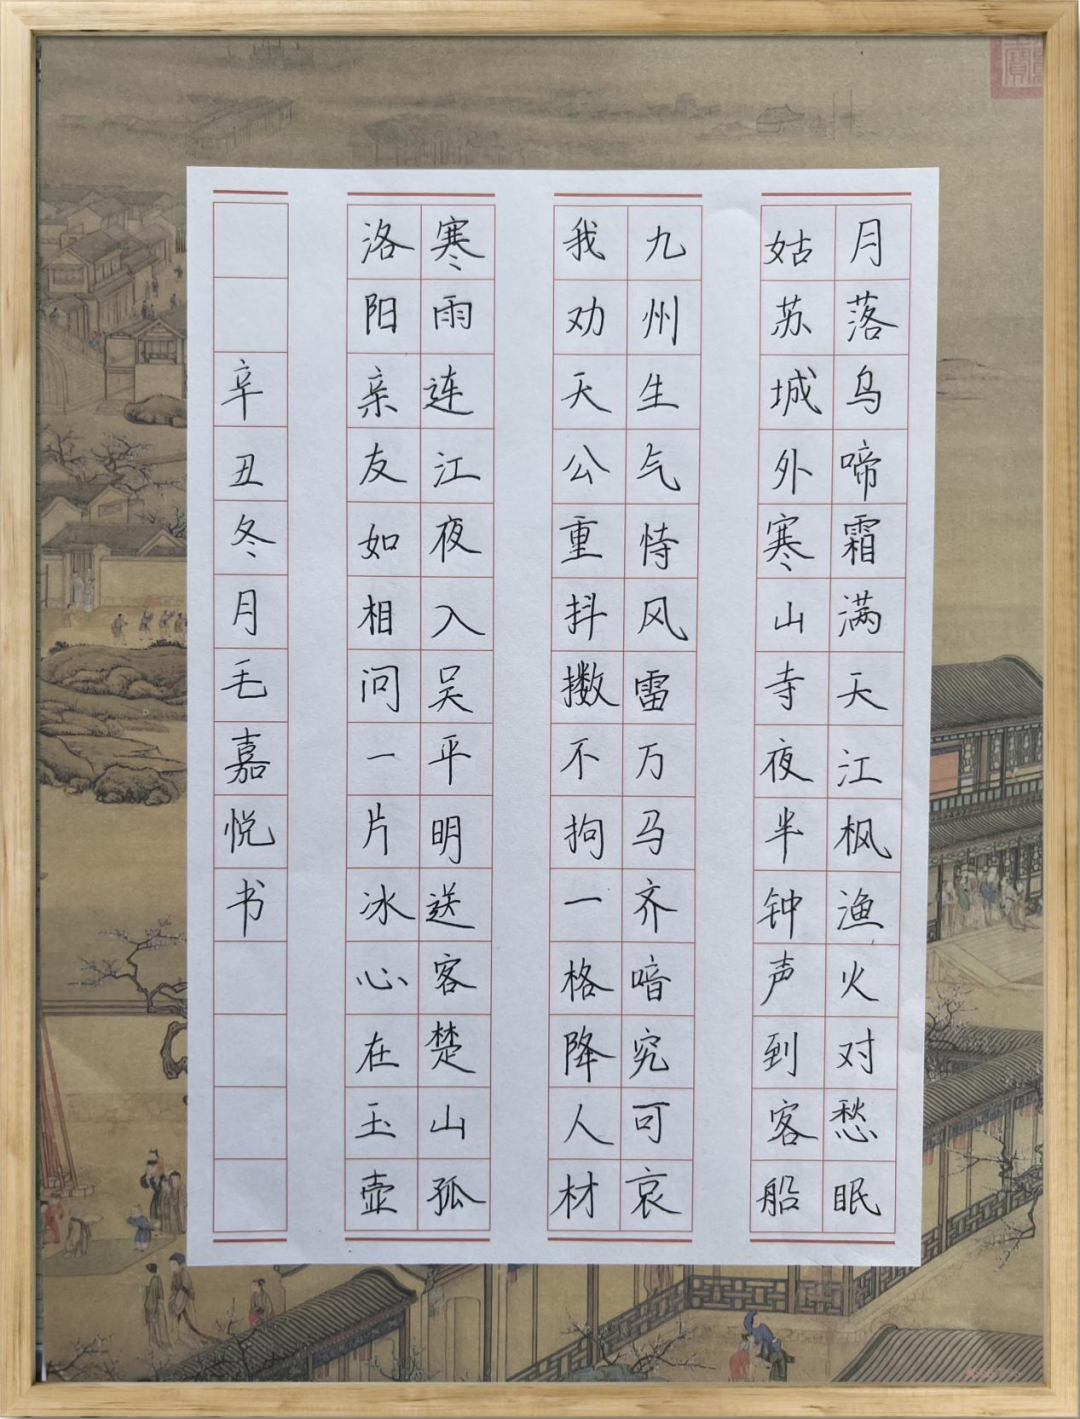 月落乌啼霜满天江枫渔火对愁眠
姑苏城外寒山寺夜半钟声到客船
九州生气恃风雷万马齐喑究可哀
我劝天公重抖擞不拘一格降人材
寒雨连江夜入吴平明送客楚山孤
洛阳亲友如相问一片冰心在玉壶
辛丑冬月毛嘉悦书